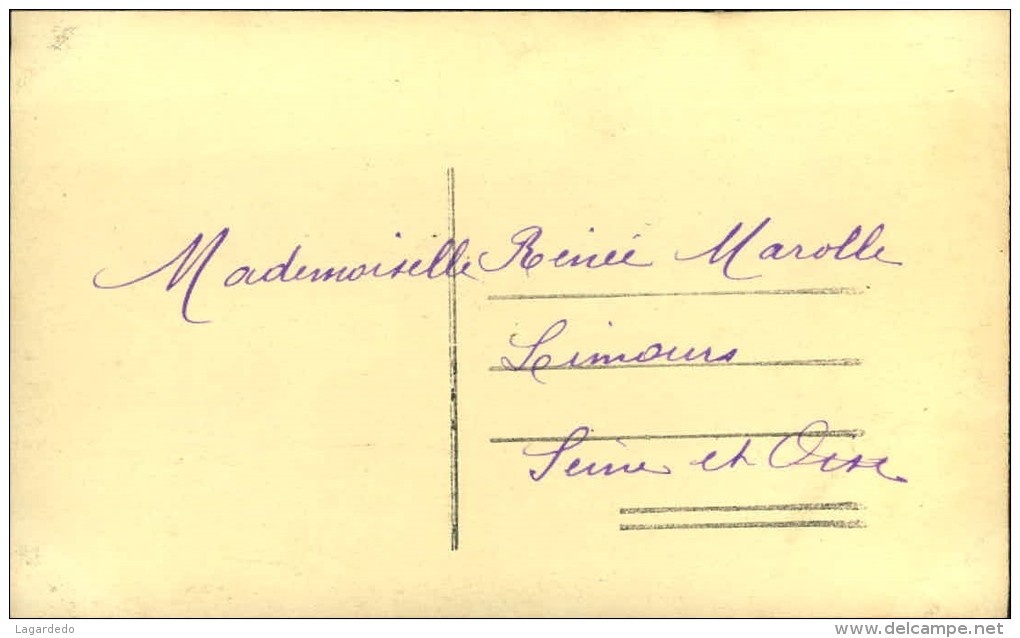 Mademoiselle Renée Marolle
Limours
Seine et Oise
Lagardedo
www.delcampe.net